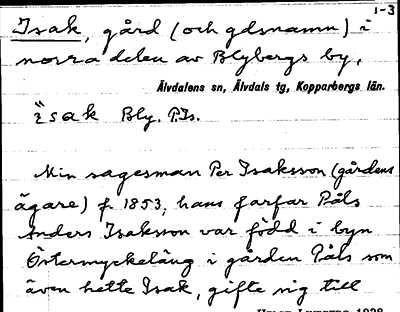 1-3
Isak, gård (och gdsnamn) i
norra delen av Blybergs by,
Älvdalens sn, Älvdals tg, Kopparbergs län.
isak Bly. P.Is.
Min sagesman Per Isaksson (gårdens
ägare) f 1853, hans farfar Påls
Anders Isaksson var född i byn
Östermyckeläng i gården Påls som
även hette Isak, gifte sig till